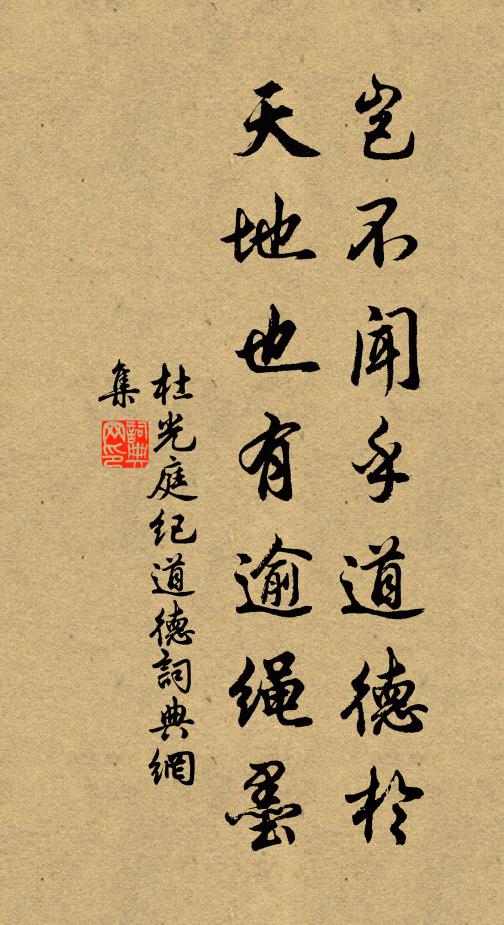 岂不闻乎道德於
天地也有逾绳墨
杜光庭纪道德詞典網
集
詞典
网印